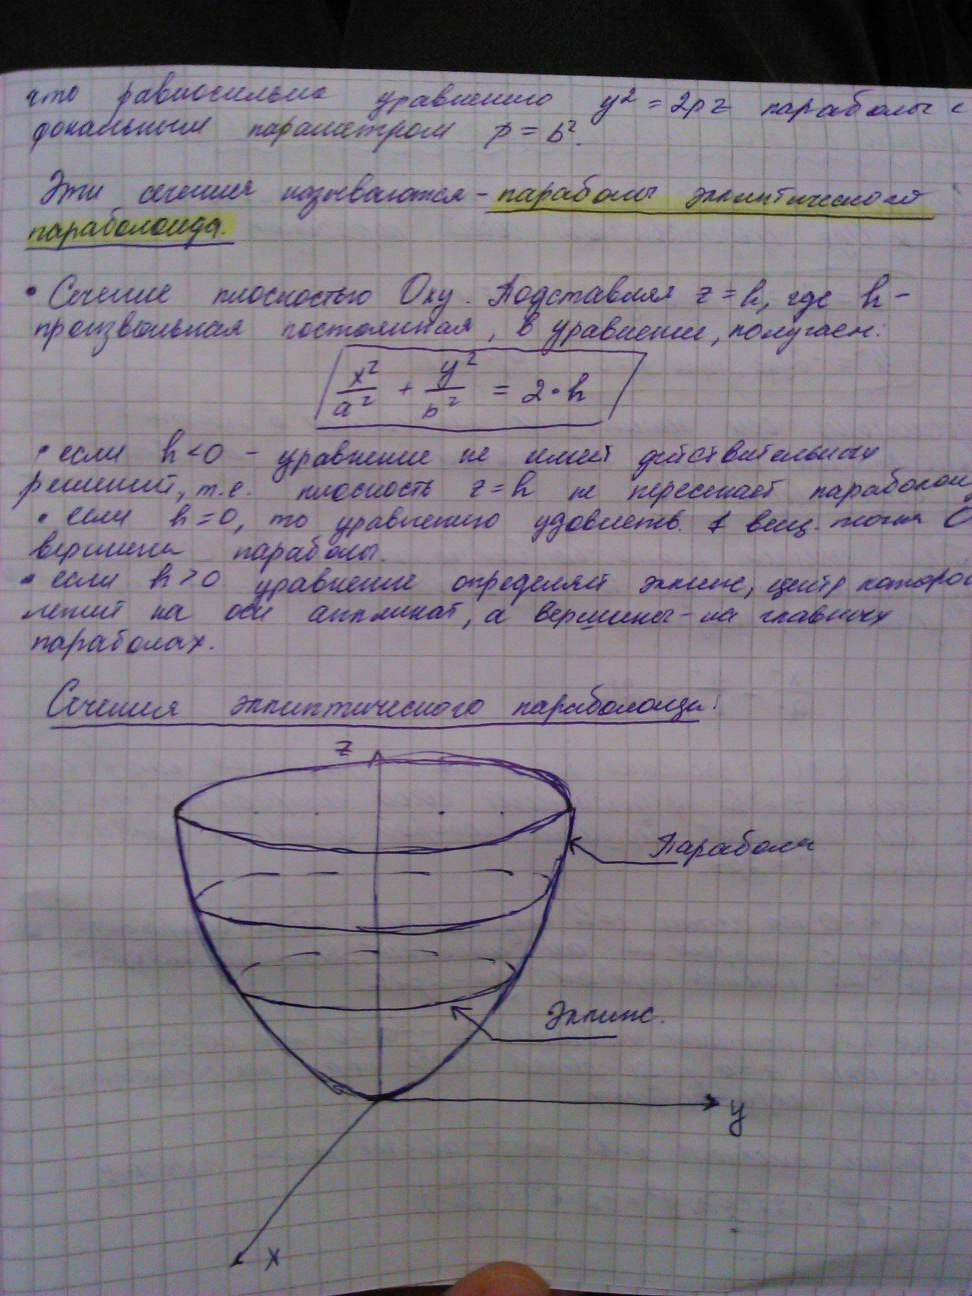 что равносильно уравнению y² = 2pz параболы с
фокальным параметром p = b².
Эти сечения называются - параболы эллиптического
параболоида.
• Сечение плоскостью Oxy. Подставляя z = h, где h -
произвольная постоянная, в уравнение, получаем:
x²/a² + y²/b² = 2·h
• если h<0 - уравнение не имеет действительных
решений, т.е. плоскость z=h не пересекает параболоид
• если h=0, то уравнению удовлетв. 1 вещ. точка O
вершина параболы.
• если h>0 уравнение определяет эллипс, центр которо
лежит на оси аппликат, а вершины - на главных
параболах.
Сечения эллиптического параболоида:
z
Парабола
Эллипс.
y
x